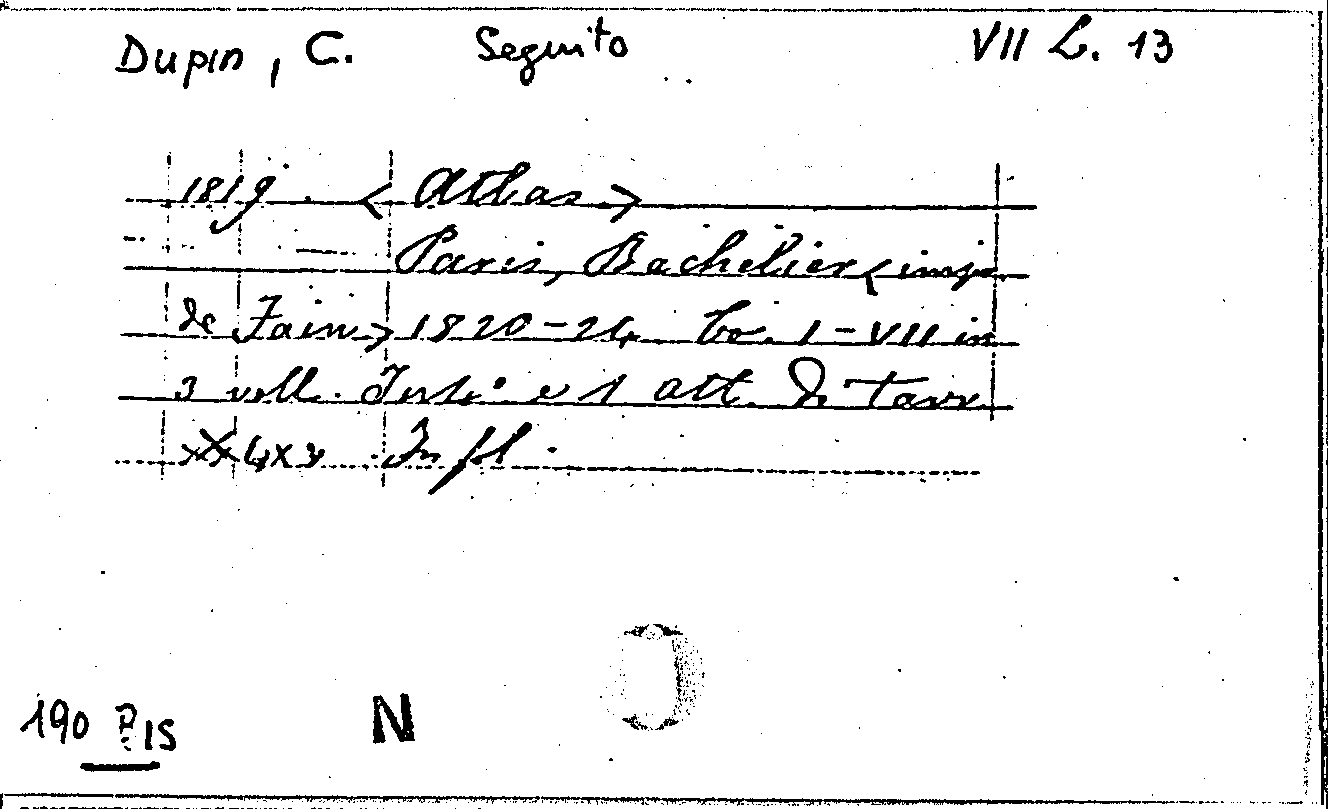 Dupin, C. Seguito VII L. 13
1819. < Atlas >
Paris, Bachelier < imp.
de Fain > 1820-24 to. I-VII in
3 voll. Testo e 1 atl. di tavv
In fl.
190 BIS N